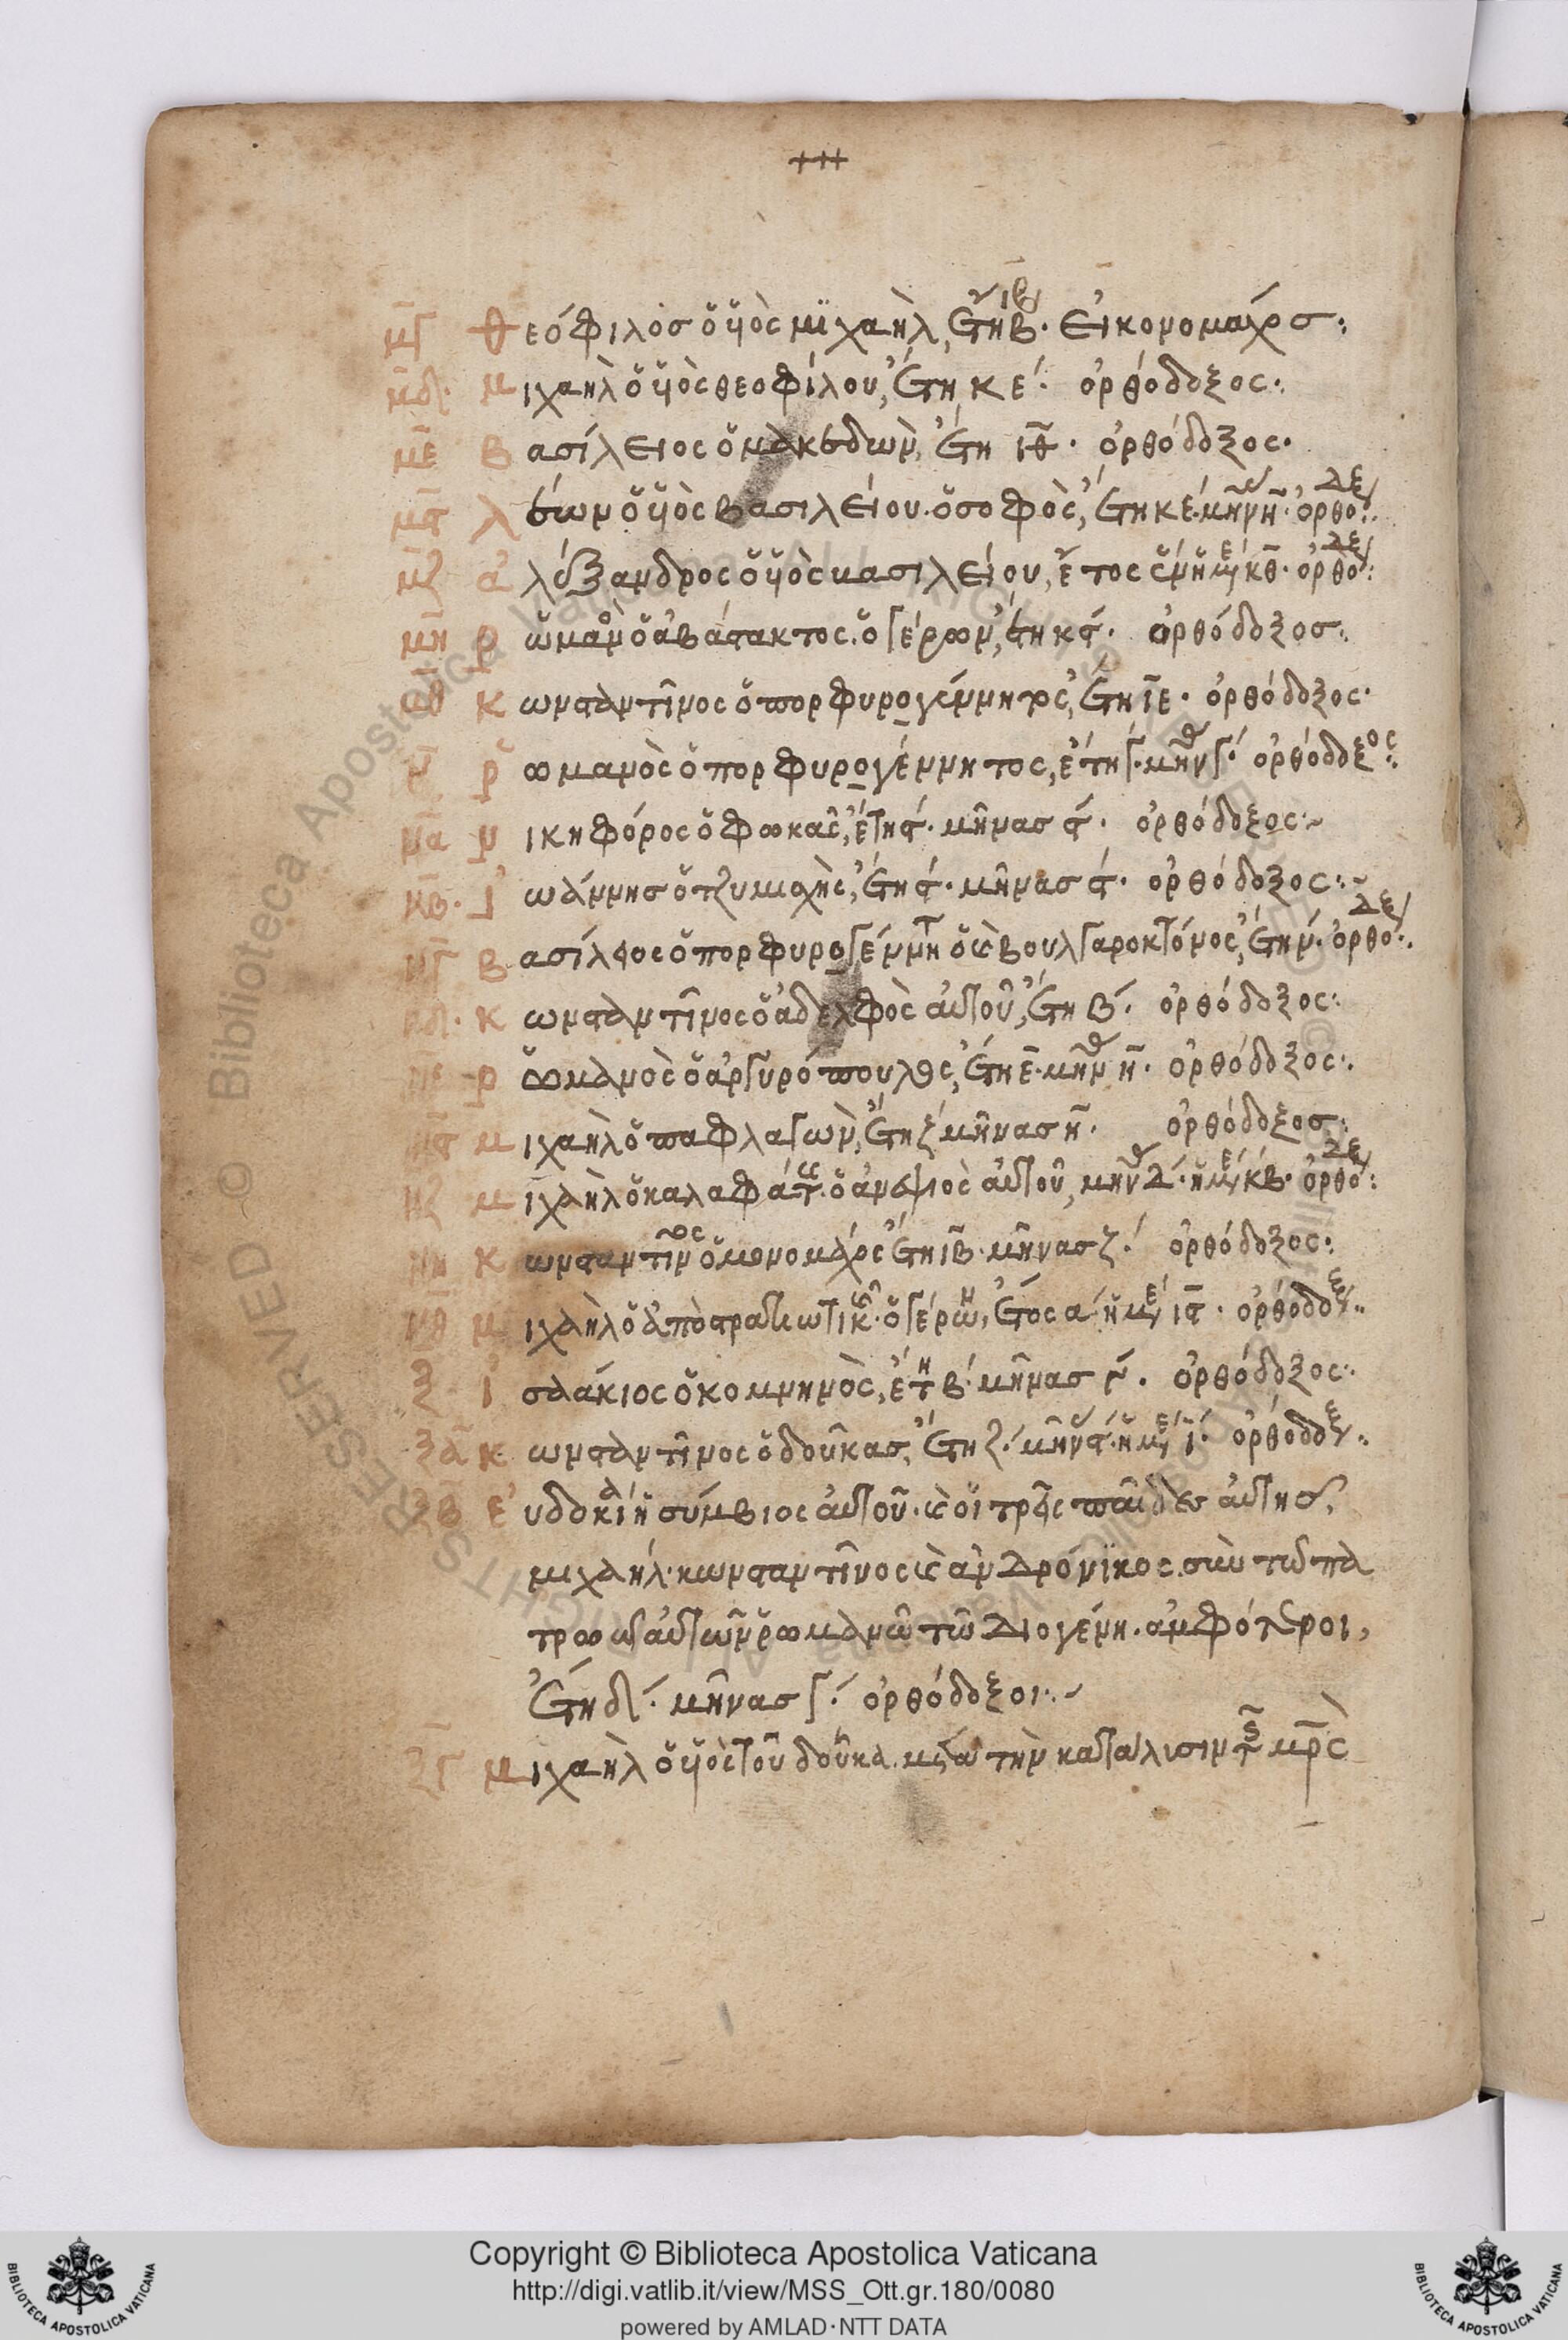 μγ θεόφιλος ὁ υἱὸς μιχαὴλ, ἔτη ιβ· εἰκονομάχος:
μδ· μιχαηλ ὁ υἱὸς θεοφίλου, ἔτη κε· ὀρθόδοξος:
με βασίλειος ὁ μακεδων, ἔτη ιθ· ὀρθόδοξος·
μϛ λέων ὁ υἱὸς βασιλείου· ὁ σοφὸς, ἔτη κε· μην η· ὀρθοδξ:
μζ ἀλέξανδρος ὁ υἱὸς βασιλείου, ἔτος α ἡμε κθ· ὀρθοδξ:
μη ῥωμαν ὁ ἀβάστακτος· ὁ γέρων, ἔτη κϛ· ὀρθόδοξος:
μθ κωνσταντῖνος ὁ πορφυρογέννητος, ἔτη ιε· ὀρθόδοξος·
ν ῥωμανὸς ὁ πορφυρογέννητος, ἔτη γ· μην γ· ὀρθόδοξος:
να νικηφόρος ὁ φωκας, ἔτη ϛ· μῆνας ϛ· ὀρθόδοξος:~
νβ· ἰωάννης ὁ τζυμισχὴς, ἔτη ϛ· μῆνας ϛ· ὀρθόδοξος:~
νγ βασίλειος ὁ πορφυρογέννητ ὁ καὶ βουλγαροκτόνος, ἔτη ν· ὀρθοδξ:
νδ· κωνσταντῖνος ὁ ἀδελφὸς αὐτοῦ, ἔτη β· ὀρθόδοξος:
νε ῥωμανὸς ὁ ἀργυρόπουλος, ἔτη ε· μην η· ὀρθόδοξος:
νϛ μιχαὴλ ὁ παφλαγὼν, ἔτη ζ μῆνας η· ὀρθόδοξος:
νζ μιχαὴλ ὁ καλαφάτης· ὁ ἀνεψιὸς αὐτοῦ, μην δ· ἡμε κβ· ὀρθοδξ:
νη κωνσταντῖνος ὁ μονομάχος ἔτη ιβ· μῆνας ζ· ὀρθόδοξος:
νθ μιχαὴλ ὁ ἀπὸ στρατιωτικῶν· ὁ γέρων, ἔτος α· ἡμε ιϛ· ὀρθόδοξ:
ξ ἰσαάκιος ὁ κομνηνὸς, ἔτη β· μῆνας γ· ὀρθόδοξος:
ξα κωνσταντῖνος ὁ δούκας, ἔτη ζ· μην ϛ· ἡμε ι· ὀρθόδοξ:
ξβ εὐδοκία ἡ σύμβιος αὐτοῦ· καὶ οἱ τρεῖς παῖδες αὐτης,
μιχαήλ· κωνσταντῖνος καὶ ἀνδρόνϊκος· σὺν τω πα
τρωω αὐτῶν ῥωμανῶ τῶ διογένη· ἀμφότεροι,
ἔτη δ· μῆνας γ· ὀρθόδοξοι:~
ξγ μιχαὴλ ὁ υἱὸς τοῦ δούκα· μετὰ τὴν κατάλυσιν τῆς μρς